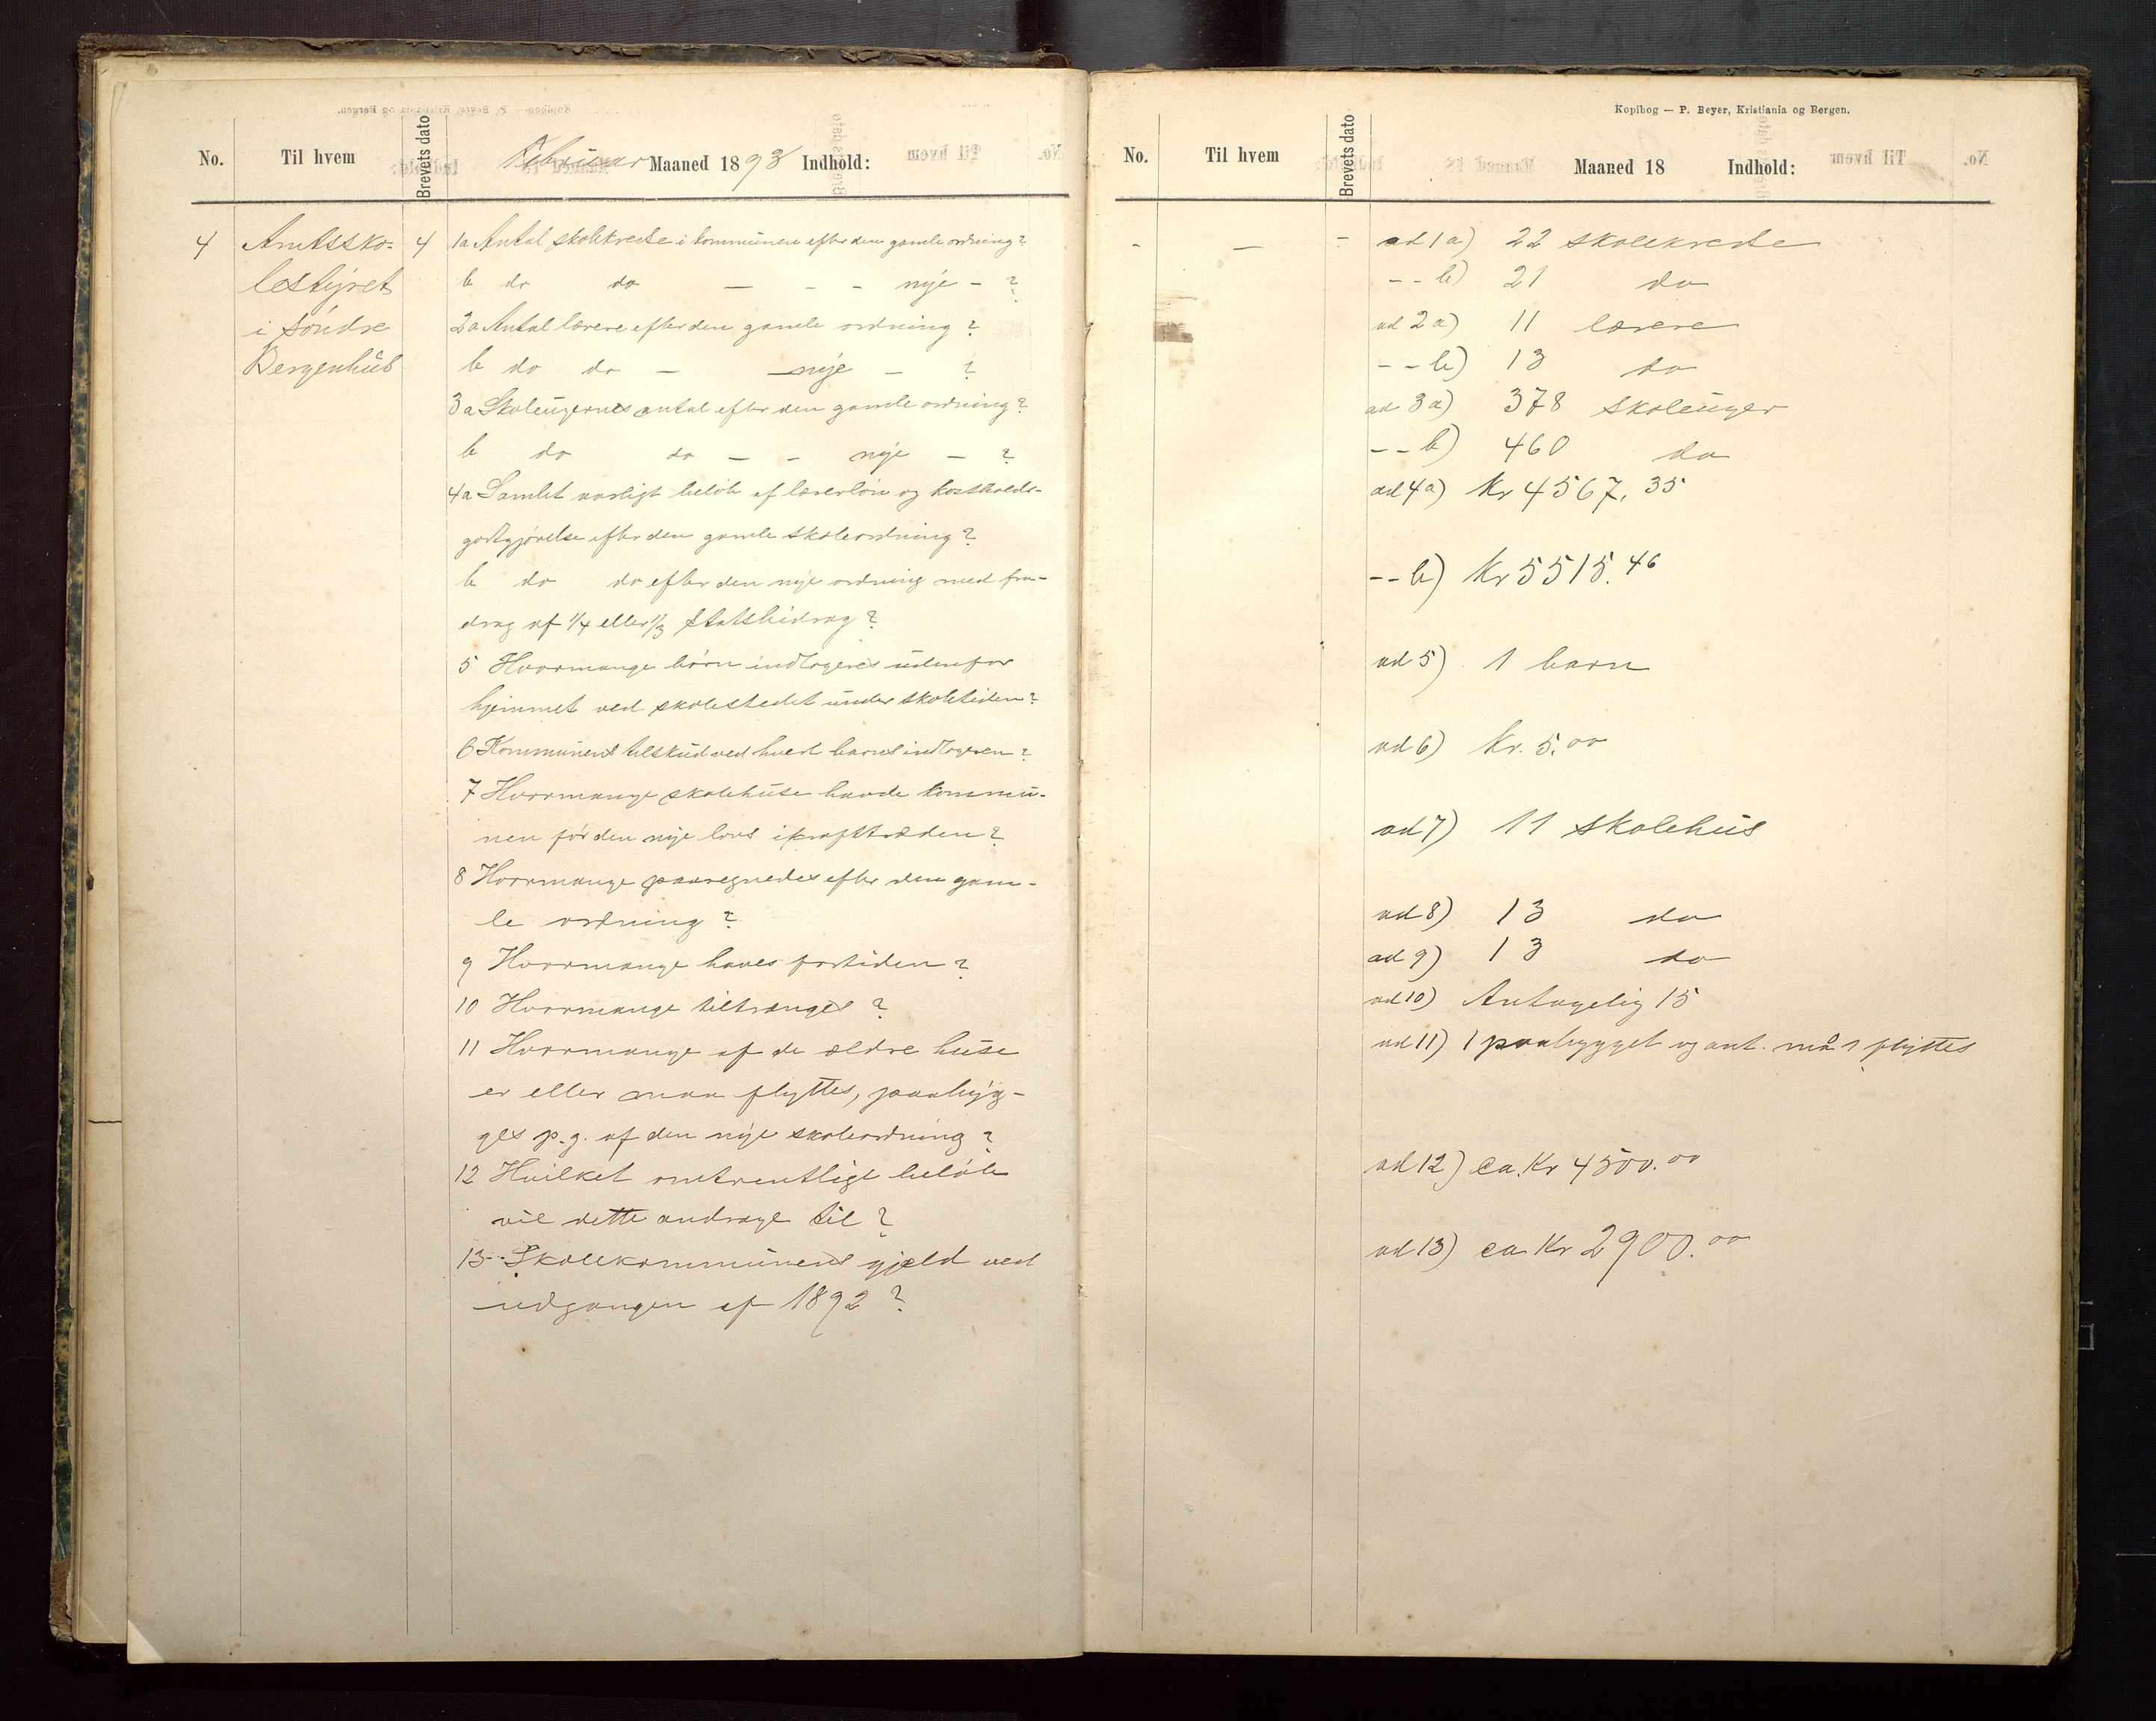 No. Til hvem Brevets dato Februar Maaned 1893 Indhold:
4 Amtssko- 4 1a Antal skolekredse i kommunen efter den gamle ordning?
lestyret b do do — - - nye - ?
i Søndre 2a Antal lærere efter den gamle ordning?
Bergenhus b do do — — nye — ?
3a Skoleugernes antal efter den gamle ordning?
b do do — - nye — ?
4a Samlet aarligt beløb af lærerløn og kostholds-
godtgjørelse efter den gamle skoleordning?
b do do efter den nye ordning med fra-
drag af 1/4 eller 1/3 statsbidrag?
5 Hvormange børn indlogeres udenfor
hjemmet ved skolestedet under skoletiden?
6 Kommunens tilskud ved hvert barns indlogeren?
7 Hvormange skolehuse havde kommu-
nen før den nye lovs ikrafttræden?
8 Hvormange paaregnedes efter den gam-
le ordning?
9 Hvormange haves fortiden?
10 Hvormange tiltrænges?
11 Hvormange af de ældre huse
er eller maa flyttes, paabyg-
ges p.g. af den nye skoleordning?
12 Hvilket omtrentligt beløb
vil dette andrage til?
13 Skolekommunens gjeld ved
udgangen af 1892?
Kopibog — P. Beyer, Kristiania og Bergen.
No. Til hvem Brevets dato Maaned 18 Indhold:
- — - ad 1a) 22 skolekredse
- - b) 21 do
ad 2a) 11 lærere
- - b) 13 do
ad 3a) 378 skoleuger
- - b) 460 do
ad 4a) Kr 4567,35
- - b) Kr 5515.46
ad 5) 1 barn
ad 6) Kr. 5.00
ad 7) 11 skolehus
ad 8) 13 do
ad 9) 13 do
ad 10) Antagelig 15
ad 11) 1 paabygget og ant. må 1 flyttes
ad 12) ca. Kr 4500.00
ad 13) ca Kr 2900.00